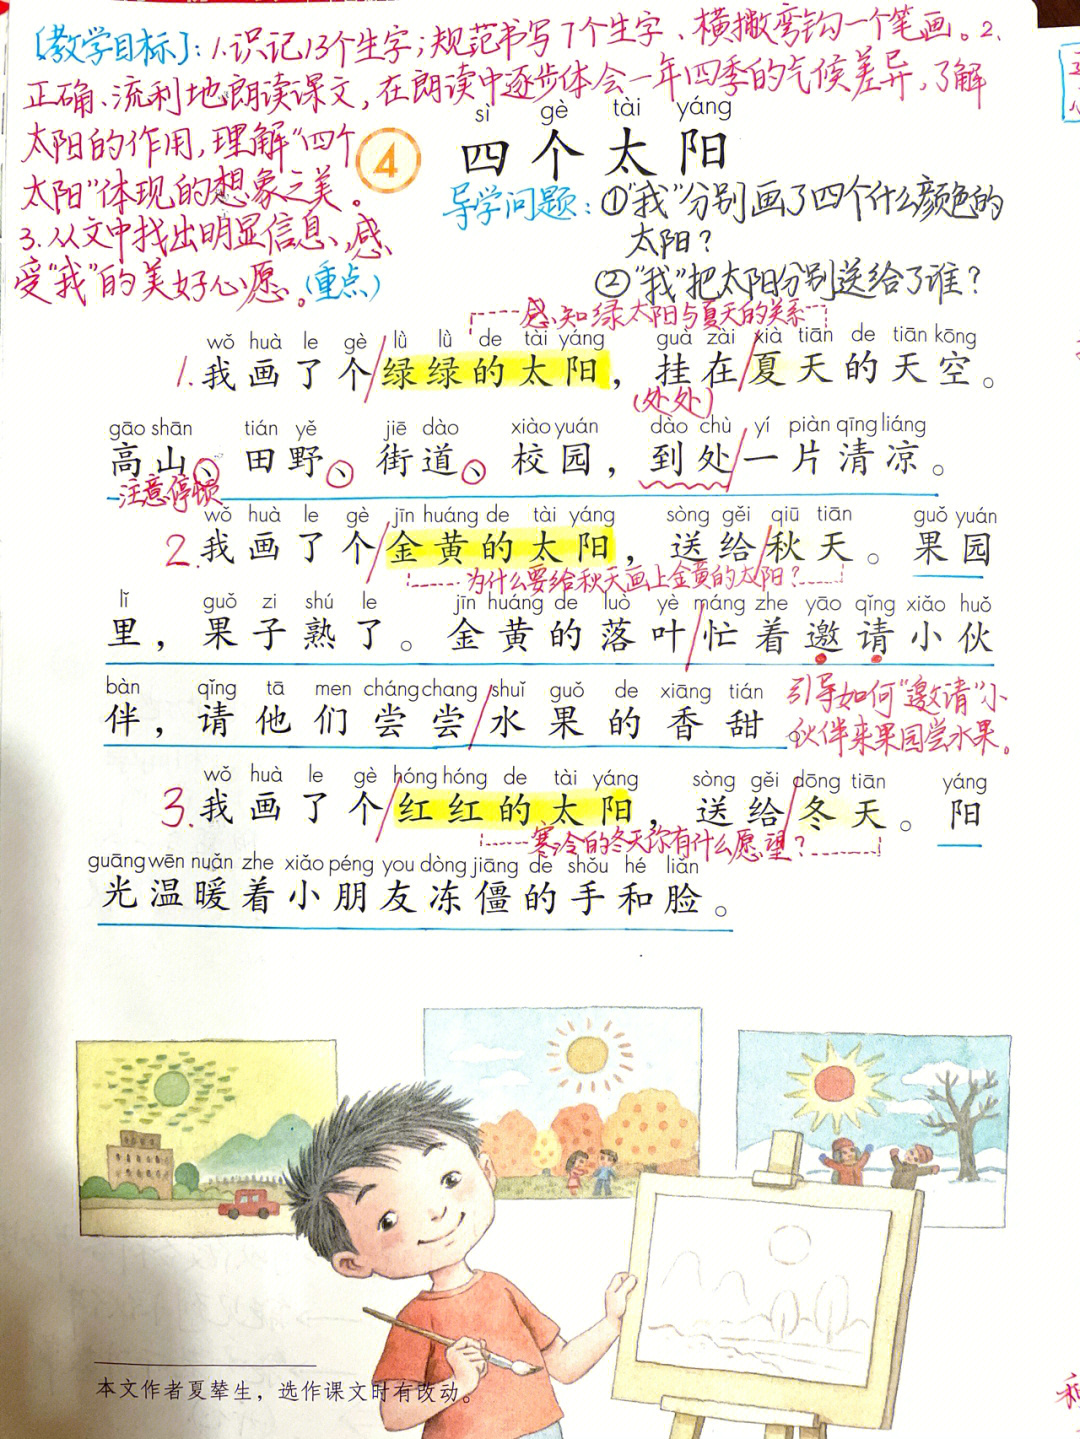 【教学目标】：1.识记13个生字；规范书写7个生字、横撇弯钩一个笔画。2、
正确、流利地朗读课文，在朗读中逐步体会一年四季的气候差异，了解
太阳的作用，理解“四个
太阳”体现的想象之美。
3.从文中找出明显信息、感
受“我”的美好心愿。（重点）
sì gè tài yáng
4 四个太阳
导学问题：①“我”分别画了四个什么颜色的
太阳？
②“我”把太阳分别送给了谁？
感知绿太阳与夏天的关系
wǒ huà le gè lǜ lǜ de tài yáng guà zài xià tiān de tiān kōng
1.我画了个/绿绿的太阳，挂在/夏天的天空。
（处处）
gāo shān tián yě jiē dào xiào yuán dào chù yí piàn qīng liáng
高山、田野、街道、校园，到处/一片清凉。
注意停顿
wǒ huà le gè jīn huáng de tài yáng sòng gěi qiū tiān guǒ yuán
2.我画了个/金黄的太阳，送给/秋天。果园
为什么要给秋天画上金黄的太阳？
lǐ guǒ zi shú le jīn huáng de luò yè máng zhe yāo qǐng xiǎo huǒ
里，果子熟了。金黄的落叶/忙着邀请小伙
bàn qǐng tā men cháng chang shuǐ guǒ de xiāng tián
伴，请他们尝尝/水果的香甜。
引导如何“邀请”小
伙伴来果园尝水果。
wǒ huà le gè hóng hóng de tài yáng sòng gěi dōng tiān yáng
3.我画了个/红红的太阳，送给/冬天。阳
寒冷的冬天你有什么愿望？
guāng wēn nuǎn zhe xiǎo péng you dòng jiāng de shǒu hé liǎn
光温暖着小朋友冻僵的手和脸。
本文作者夏辇生，选作课文时有改动。